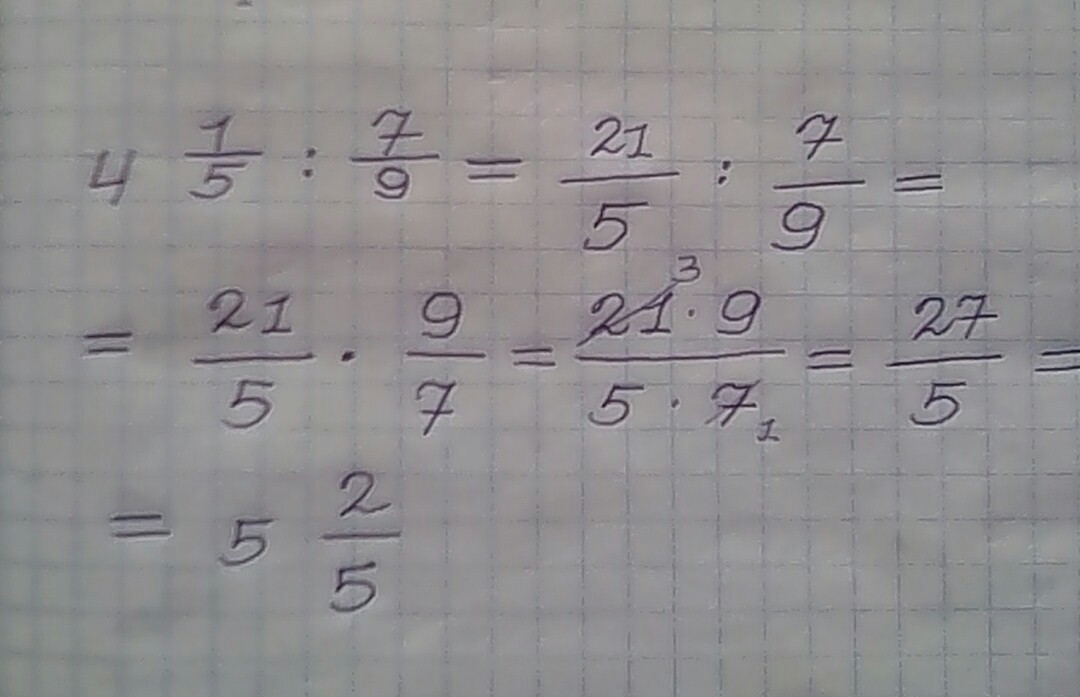 4 1/5 : 7/9 = 21/5 : 7/9 =
= 21/5 · 9/7 = 21³ · 9 / 5 · 7₁ = 27/5 =
= 5 2/5